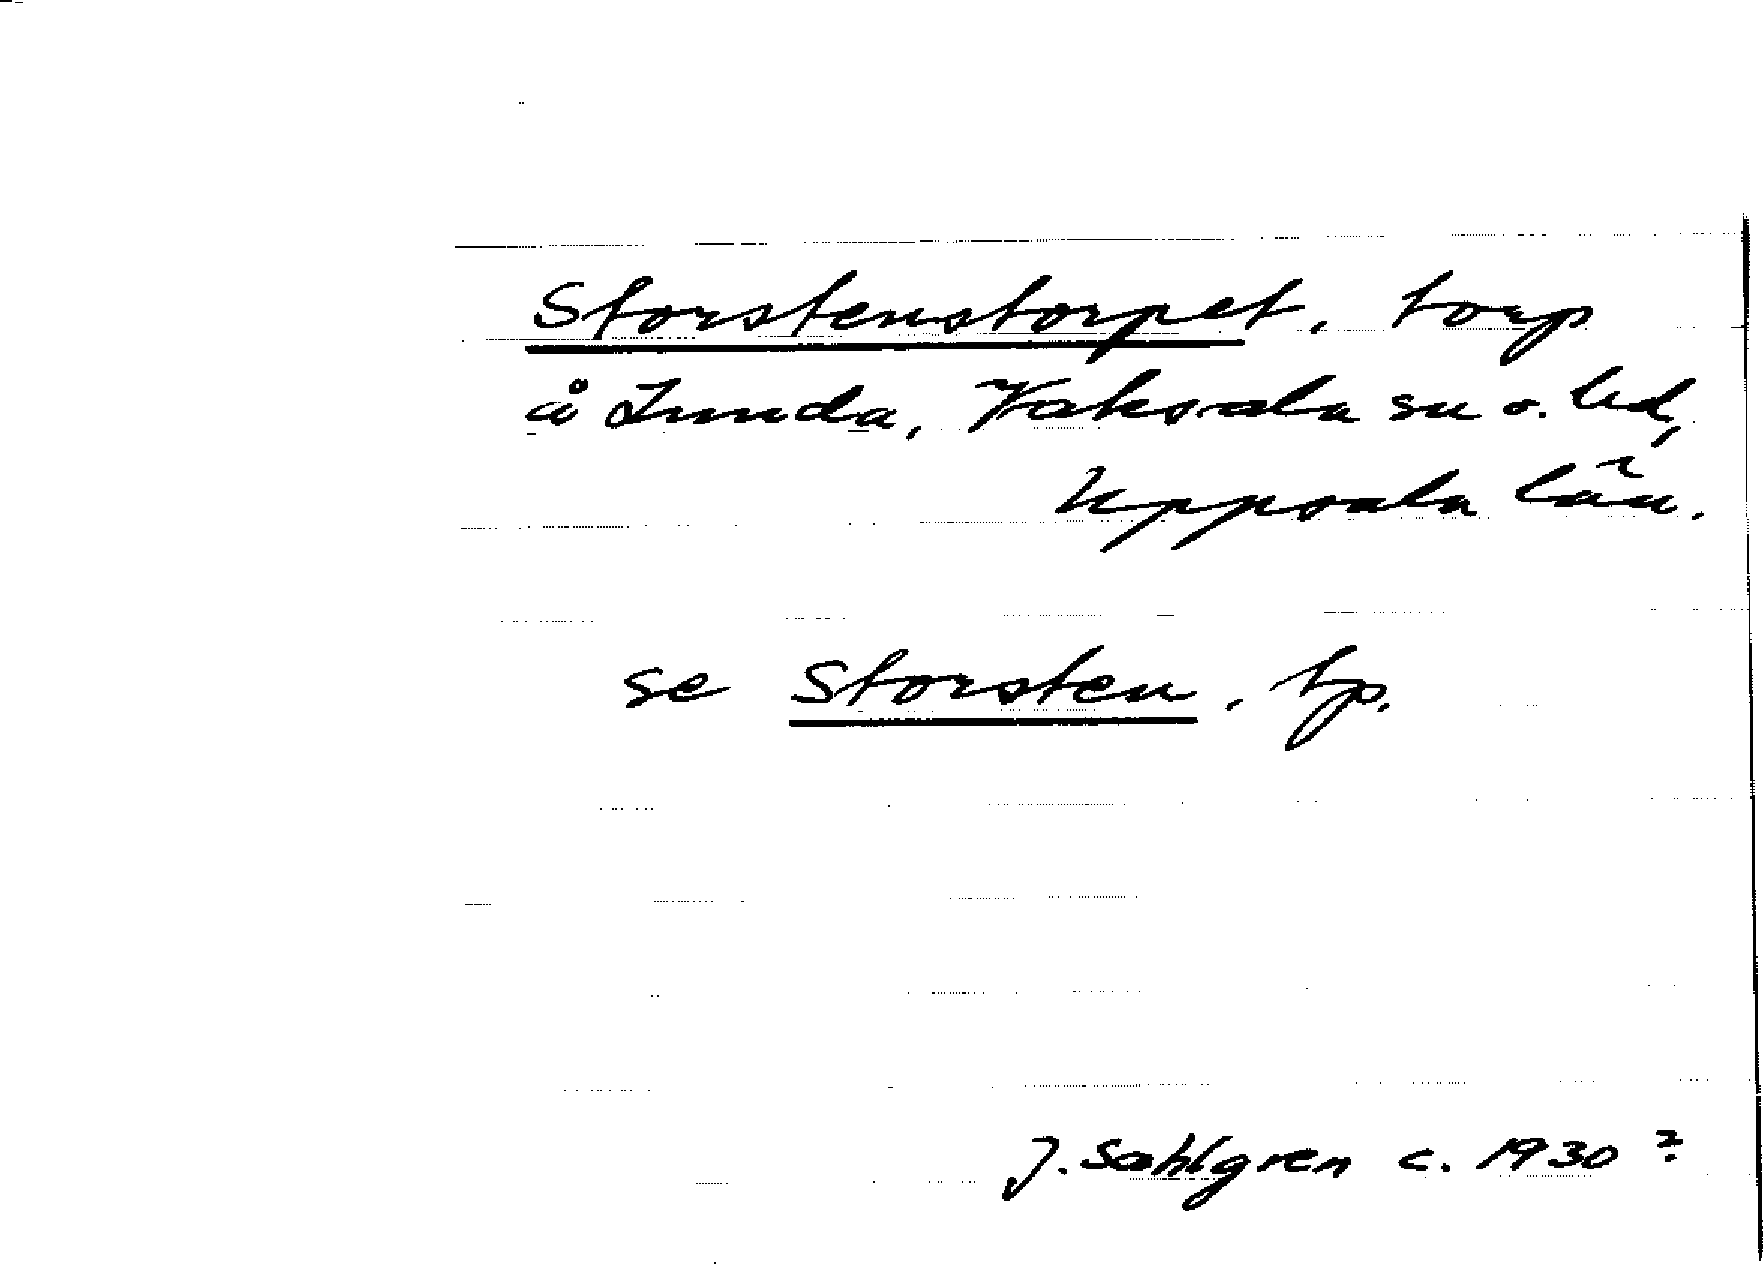 Storstenstorpet, torp
å Lunda, Vaksala sn o. hd,
Uppsala län.
se Storsten, tp.
J. Sahlgren c. 1930?